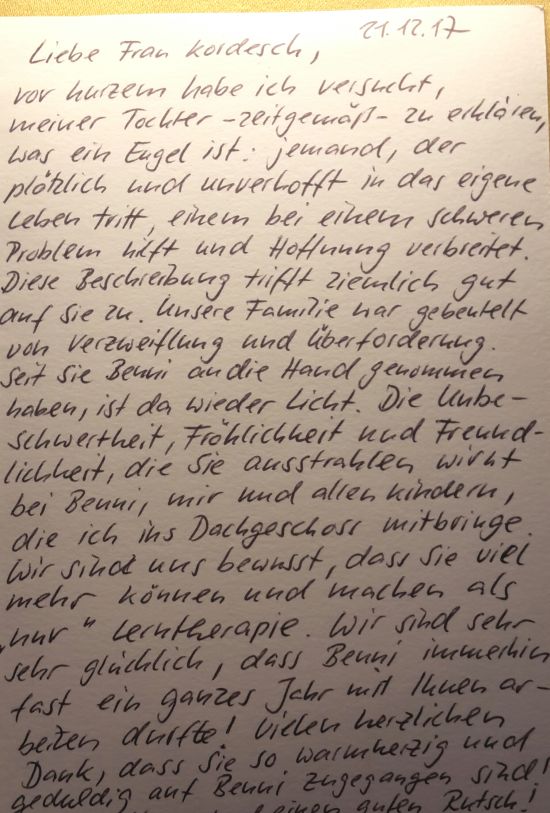 21.12.17
Liebe Frau Kordesch,
vor kurzem habe ich versucht,
meiner Tochter -zeitgemäß- zu erklären,
was ein Engel ist: jemand, der
plötzlich und unverhofft in das eigene
Leben tritt, einem bei einem schweren
Problem hilft und Hoffnung verbreitet.
Diese Beschreibung trifft ziemlich gut
auf Sie zu. Unsere Familie war gebeutelt
von Verzweiflung und Überforderung.
Seit Sie Benni an die Hand genommen
haben, ist da wieder Licht. Die Unbe-
schwertheit, Fröhlichkeit und Freund-
lichkeit, die Sie ausstrahlen wirkt
bei Benni, mir und allen Kindern,
die ich ins Dachgeschoss mitbringe.
Wir sind uns bewusst, dass Sie viel
mehr können und machen als
„nur“ Lerntherapie. Wir sind sehr
sehr glücklich, dass Benni immerhin
fast ein ganzes Jahr mit Ihnen ar-
beiten durfte! Vielen herzlichen
Dank, dass Sie so warmherzig und
geduldig auf Benni zugegangen sind!
einen guten Rutsch!